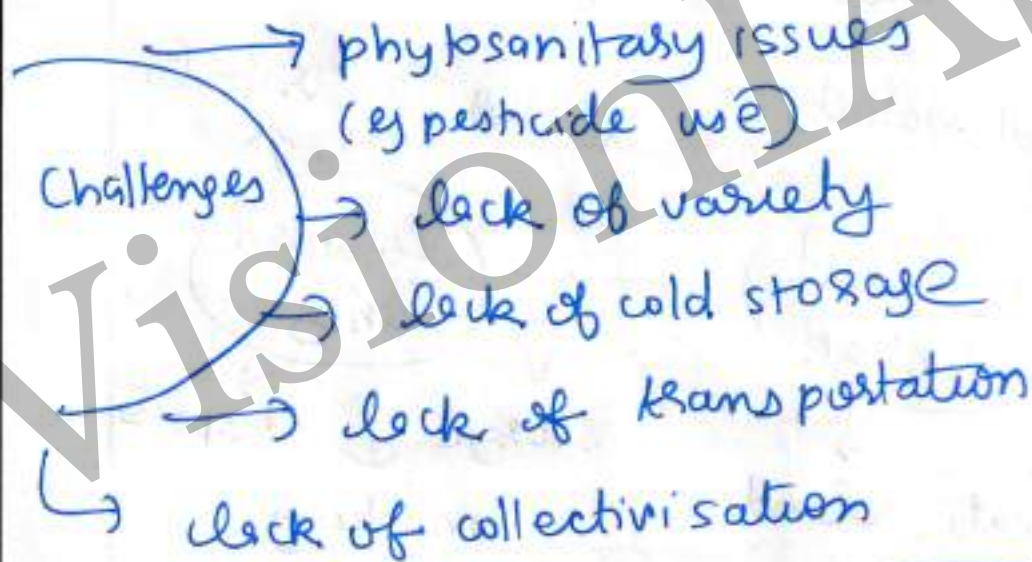 → phytosanitary issues
(eg pesticide use)
Challenges
→ lack of variety
→ lack of cold storage
→ lack of transportation
↳ lack of collectivisation
VisionIA